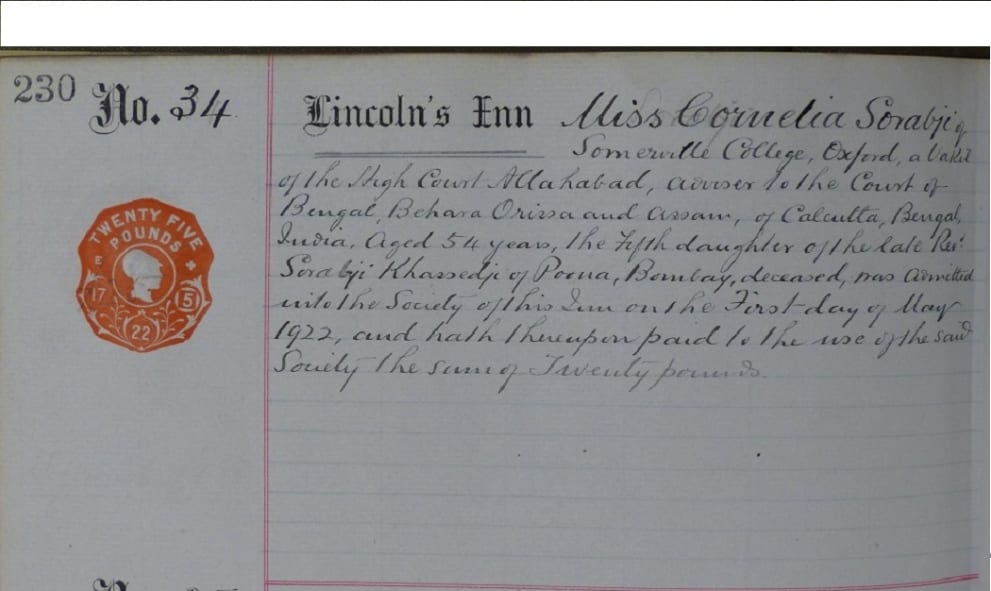 230
No. 34
Lincoln's Inn Miss Cornelia Sorabji of
Somerville College, Oxford, a Vakil
of the High Court Allahabad, adviser to the Court of
Bengal, Behara Orissa and Assam, of Calcutta, Bengal,
India, Aged 54 years, the Fifth daughter of the late Revd
Sorabji Kharsedji of Poona, Bombay, deceased, was admitted
into the Society of this Inn on the First day of May
1922, and hath thereupon paid to the use of the said
Society the sum of Twenty pounds.
TWENTY FIVE
POUNDS
E
17
5
22